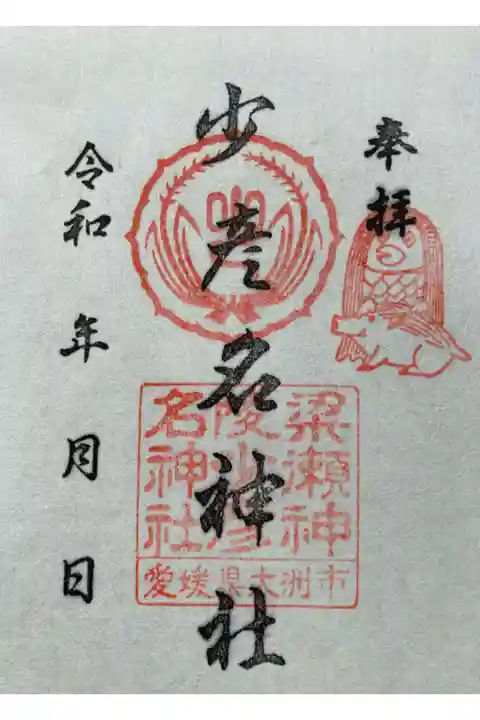 奉拝
少彦名神社
梁瀬神
陵少彦
名神社
愛媛県大洲市
令和 年 月 日